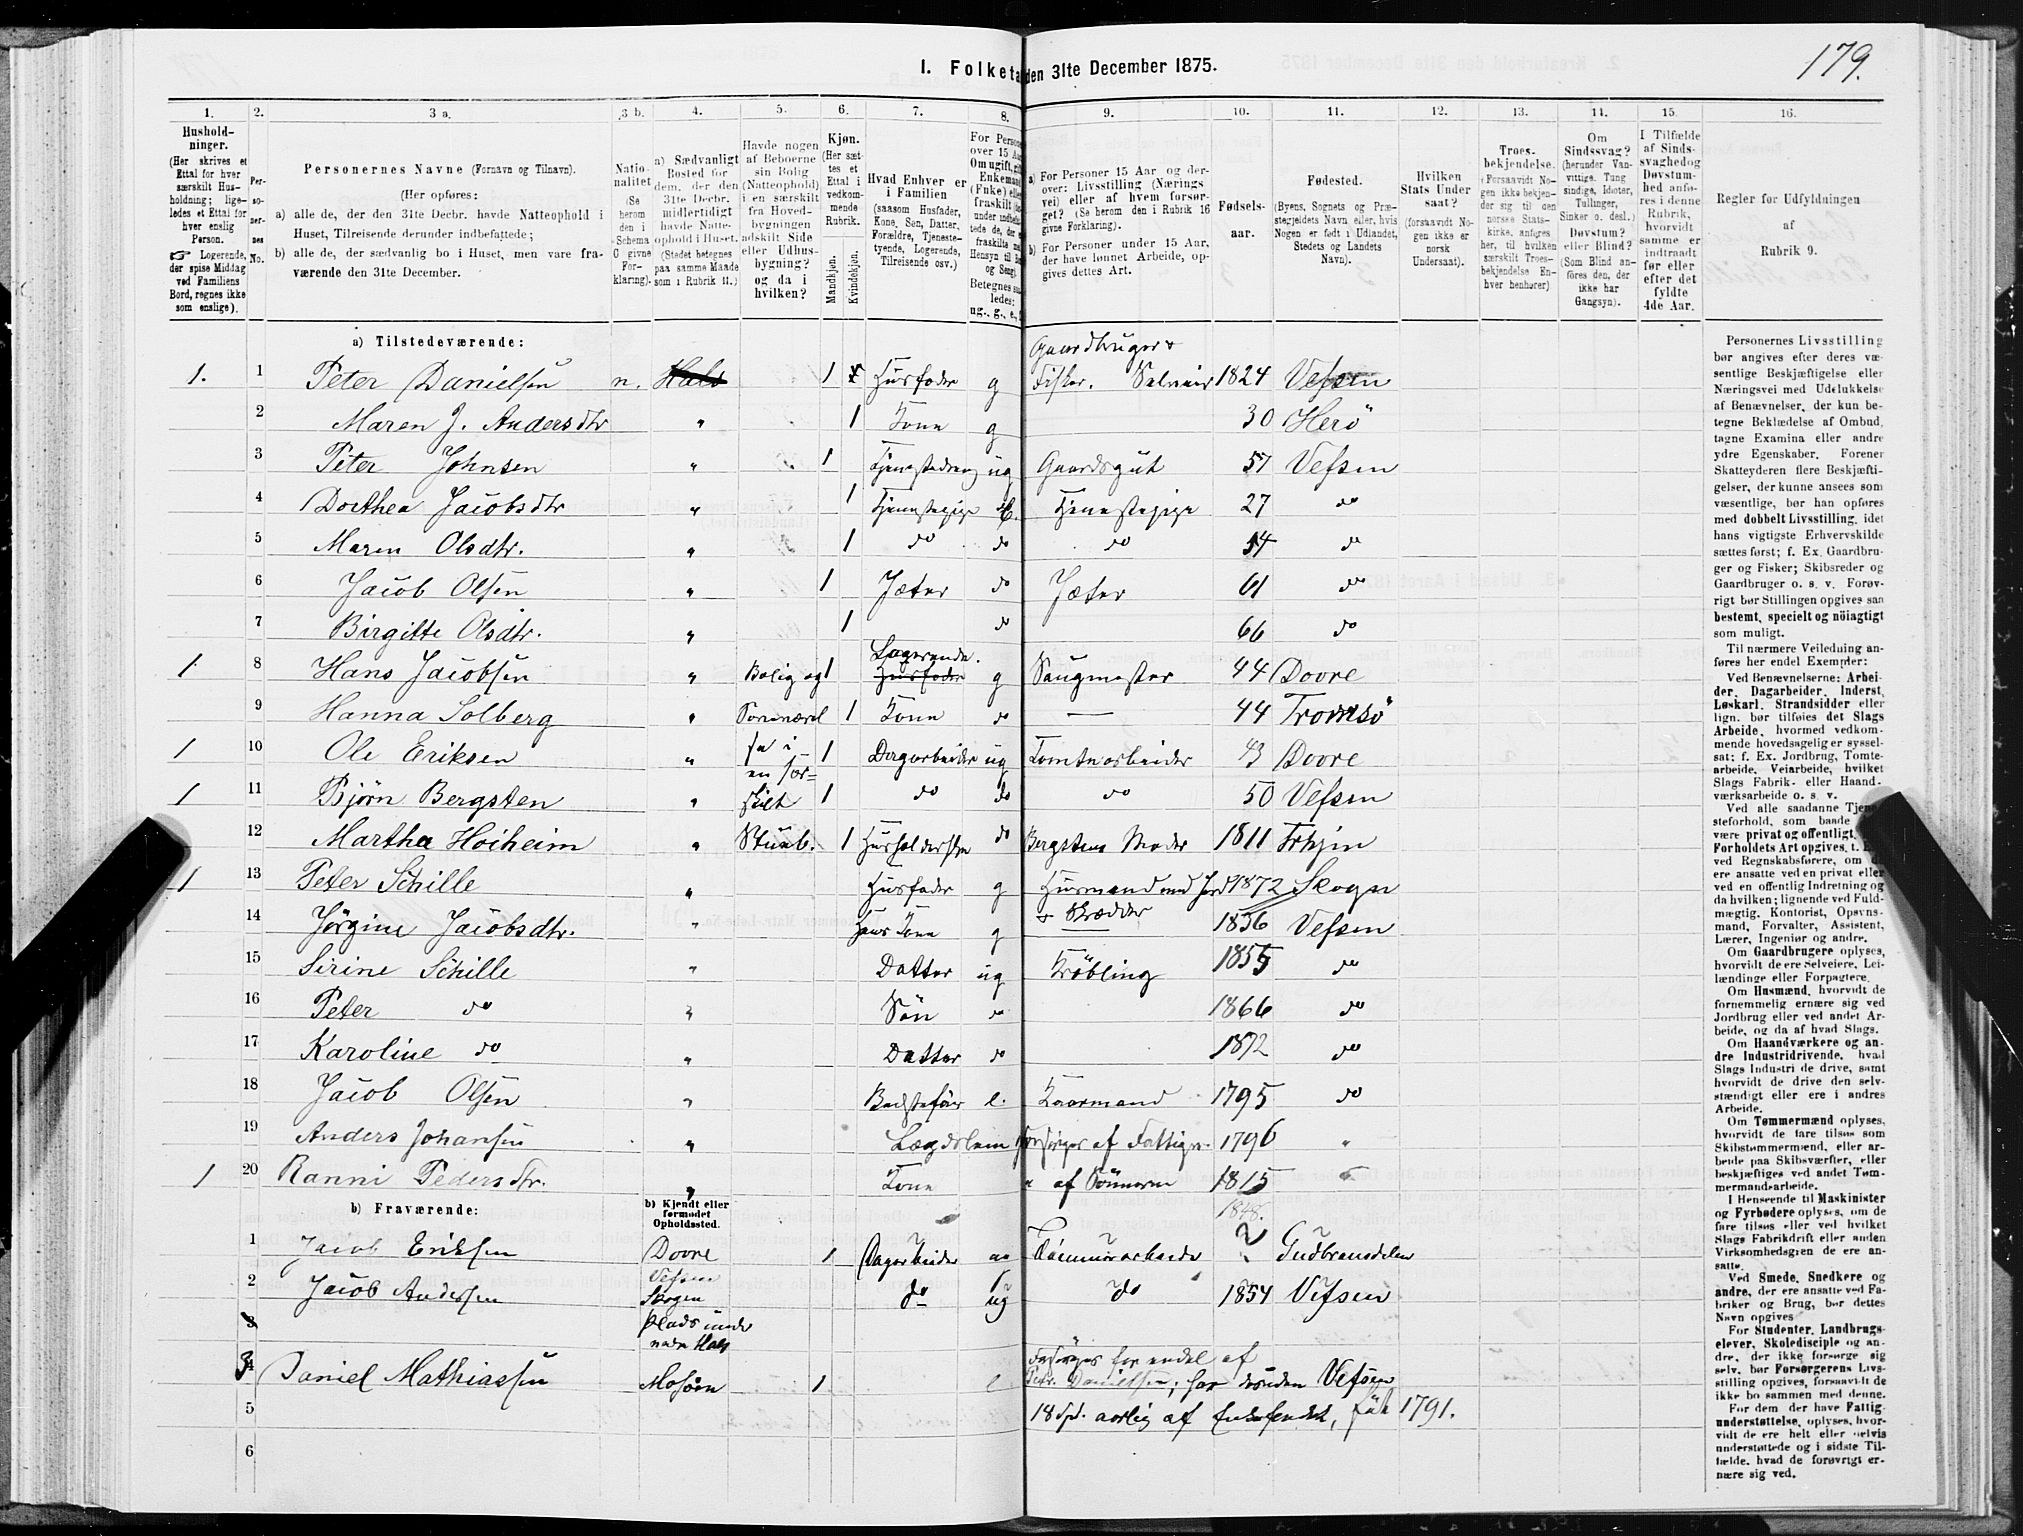 179.
1. Folketæ
den 31te December 1875.
1. 2. 3 a. 3 b. 4. 5. 6. 7. 8. 9. 10. 11. 12. 13. 14. 15. 16.
Hushold-
ninger.
(Her skrives et
Ettal for hver
særskilt Hus-
holdning; lige-
ledes et Ettal for
hver enslig
Person.
☞ Logerende,
der spise Middag
ved Familiens
Bord, regnes ikke
som enslige).
Per-
so-
ner-
nes
No.
Personernes Navne (Fornavn og Tilnavn).
(Her opføres:
a) alle de, der den 31te Decbr. havde Natteophold i
Huset, Tilreisende derunder indbefattede;
b) alle de, der sædvanlig bo i Huset, men vare fra-
værende den 31te December.
Natio-
nalitet
(Se
herom
den i
Schema
G givne
For-
klaring).
a) Sædvanligt
Bosted for
dem, der den
31te Decbr.
midlertidigt
havde Natte-
ophold i Huset.
(Stedet betegnes
paa samme Maade
som i Rubrik 11.)
Havde nogen
af Beboerne
sin Bolig
(Natteophold)
i en særskilt
fra Hoved-
bygningen
adskilt Side
eller Udhus-
bygning?
og da i
hvilken?
Kjøn.
(Her sæt-
tes et
Ettal i
vedkom-
mende
Rubrik.
Mandkjøn.
Kvindekjøn.
Hvad Enhver er
i Familien
(saasom Husfader,
Kone, Søn, Datter,
Forældre, Tjeneste-
tyende, Logerende,
Tilreisende osv.)
For Person
over 15 Aar
Om ugift, gift
Enkemand
(Enke) eller
fraskilt
a) For Personer 15 Aar og der-
over: Livsstilling (Nærings
vei) eller af hvem forsør-
get? (Se herom den i Rubrik 16
givne Forklaring).
b) For Personer under 15 Aar,
der have lønnet Arbeide, op-
gives dettes Art.
Fødsels-
aar.
Fødested.
(Byens, Sognets og Præ-
stegjeldets Navn eller, hvis
Nogen er født i Udlandet,
Stedets og Landets
Navn).
Hvilken
Stats Under
saat?
(forsaavidt No-
gen ikke er
norsk
Undersaat).
Troes-
bekjendelse.
(Forsaavidt No-
gen ikke bekjen-
der sig til den
norske Stats-
kirke, anføres
her, til hvilken
særskilt Troes-
bekjendelse En-
hver henhører)
Om
Sindssvag?
(herunder Van-
vittige, Tung
sindige, Idioter,
Tullinger,
Sinker o. desl.)
Døvstum?
eller Blind?
(Som Blind an-
føres den, der
ikke har
Gangsyn).
I Tilfælde
af Sinds-
svaghed og
Døvstum-
hed anfø-
res i denne
Rubrik,
hvorvidt
samme er
indtraadt
før eller
efter det
fyldte
4de Aar.
Regler for Udfyldningen
af
Rubrik 9.
a) Tilstedeværende:
Gaardbruger &
1. 1 Peter Danielsen n. Hals 1 Husfader g Fisker. Selveier 1824 Vefsen
2 Maren J. Andersdtr " 1 Kone g 30 Herö
3 Peter Johnsen " 1 Tjenestedreng ug Gaardsgut 57 Vefsen
4 Dorthea Jacobsdtr " 1 Tjenestepige Tjenestepige 27 do
5 Maren Olsdtr. " 1 do do do 54 do
6 Jacob Olsen " 1 Jæter do Jæter 61 do
7 Birgitte Olsdtr. " 1 do 66 do
Logerende.
1 8 Hans Jacobsen " Bolig og 1 Husfader g Saugmester 44 Dovre
9 Hanna Solberg " 1 Kone do — 44 Tromsö
1 10 Ole Eriksen " 1 Dagarbeider ug Tomtearbeider 43 Dovre
en sær=
1 11 Bjørn Bergsten " skilt 1 do do do 50 Vefsen
12 Martha Hoiheim " Stueb. 1 Husholderske do Bergstens Moder 1811
1 13 Peter Schille " Husfader g Husmand med Jord 1872 Skogn
& Skrædder
14 Jørgine Jacobsdtr. " Hans Kone g 1836 Vefsen
15 Sirine Schille " Datter ug 1855 do
16 Peter do " Sön do 1866 do
17 Karoline do " Datter do 1872 do
18 Jacob Olsen " Bedstefar e. Kaarmand 1795 do
19 Anders Johansen " Lægdslem Forsørges af Fattigv. 1796 "
1 20 Ranni Pedersdtr. " Kone " af Sönnerne 1815 "
b) Fraværende:
b) Kjendt eller
formodet
Opholdssted.
1848.
1 Jacob Eriksen Dovre 1 Dagarbeider Tømmerarbeide ? Gudbransdalen
Vefsen
2 Jacob Andersen Skogen do ug do 1854 Vefsen
3 Plads under
Hals
Forsørges for endel af
3 4 Daniel Mathiassen Mosøen 1 e Peter Danielsen, har desuden Vefsen
5 18 Spd. aarlig af Enkefondet, föd 1791.
6
Personernes Livsstilling
bør angives efter deres væ-
sentlige Beskjæftigelse eller
Næringsvei med Udelukkelse
af Benævnelser, der kun be-
tegne Beklædelse af Ombud,
tagne Examina eller andre
ydre Egenskaber. Forener
Skatteyderen flere Beskjæfti-
gelser, der kunne ansees som
væsentlige, bør han opføres
med dobbelt Livsstilling, idet
hans vigtigste Erhvervskilde
sættes først; f. Ex. Gaardbru-
ger og Fisker; Skibsreder og
Gaardbruger o. s. v. Forøv-
rigt bør Stillingen opgives saa
bestemt, specielt og nöiagtigt
som muligt.
Til nærmere Veiledning an-
føres her endel Exempler:
Ved Benævnelserne: Arbei-
der, Dagarbeider, Inderst,
Løskarl, Strandsidder eller
lign. bør tilføies det Slags
Arbeide, hvormed vedkom-
mende hovedsagelig er syssel-
sat; f. Ex. Jordbrug, Tomte-
arbeide, Veiarbeide, hvilket
Slags Fabrik- eller Haand-
værksarbeide o. s. v.
Ved alle saadanne Tjene-
steforhold, som baade
være privat og offentligt,
Forholdets Art opgives, t. Ex.
ved Regnskabsførere, om de
ere ansatte ved en privat eller
ved en offentlig Indretning og
da hvilken; lignende ved Fuld-
mægtig, Kontorist, Opsyns-
mand, Forvalter, Assistent,
Lærer, Ingeniør og andre.
Om Gaardbrugere oplyses,
hvorvidt de ere Selveiere, Lei-
lændinge eller Forpagtere.
Om Husmænd, hvorvidt de
fornemmelig ernære sig ved
Jordbrug eller ved andet Ar-
beide, og da af hvad Slags.
Om Haandværkere og an-
dre Industridrivende, hvad
Slags Industri de drive, samt
hvorvidt de drive den selv-
stændigt eller ere i andres
Arbeide.
Om Tømmermænd oplyses,
hvorvidt de fare tilsøs som
Skibstømmermænd, eller ar-
beide paa Skibsværfter, eller
beskjæftiges ved andet Tøm-
mermandsarbeide.
I Henseende til Maskinister
og Fyrbødere oplyses, om de
fare tilsøs eller ved hvilket
Slags Fabrikdrift eller anden
Virksomhedsgren de ere an-
satte.
Ved Smede, Snedkere og
andre, der ere ansatte ved Fa-
briker og Brug, bør dettes
Navn opgives
For Studenter, Landbrugs-
elever, Skoledisciple og an-
dre, der ikke forsørge sig
selv, bør Forsørgerens Livs-
stilling opgives, forsaavidt de
ikke bo sammen med denne.
For dem, der have Fattig
understøttelse, oplyses, hvor-
vidt de ere helt eller delvis
understøttede og i sidste Til-
fælde, hvad de forøvrigt er-
nære sig ved.